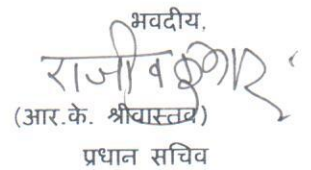 भवदीय,
राजीव कुमार
(आर.के. श्रीवास्तव)
प्रधान सचिव